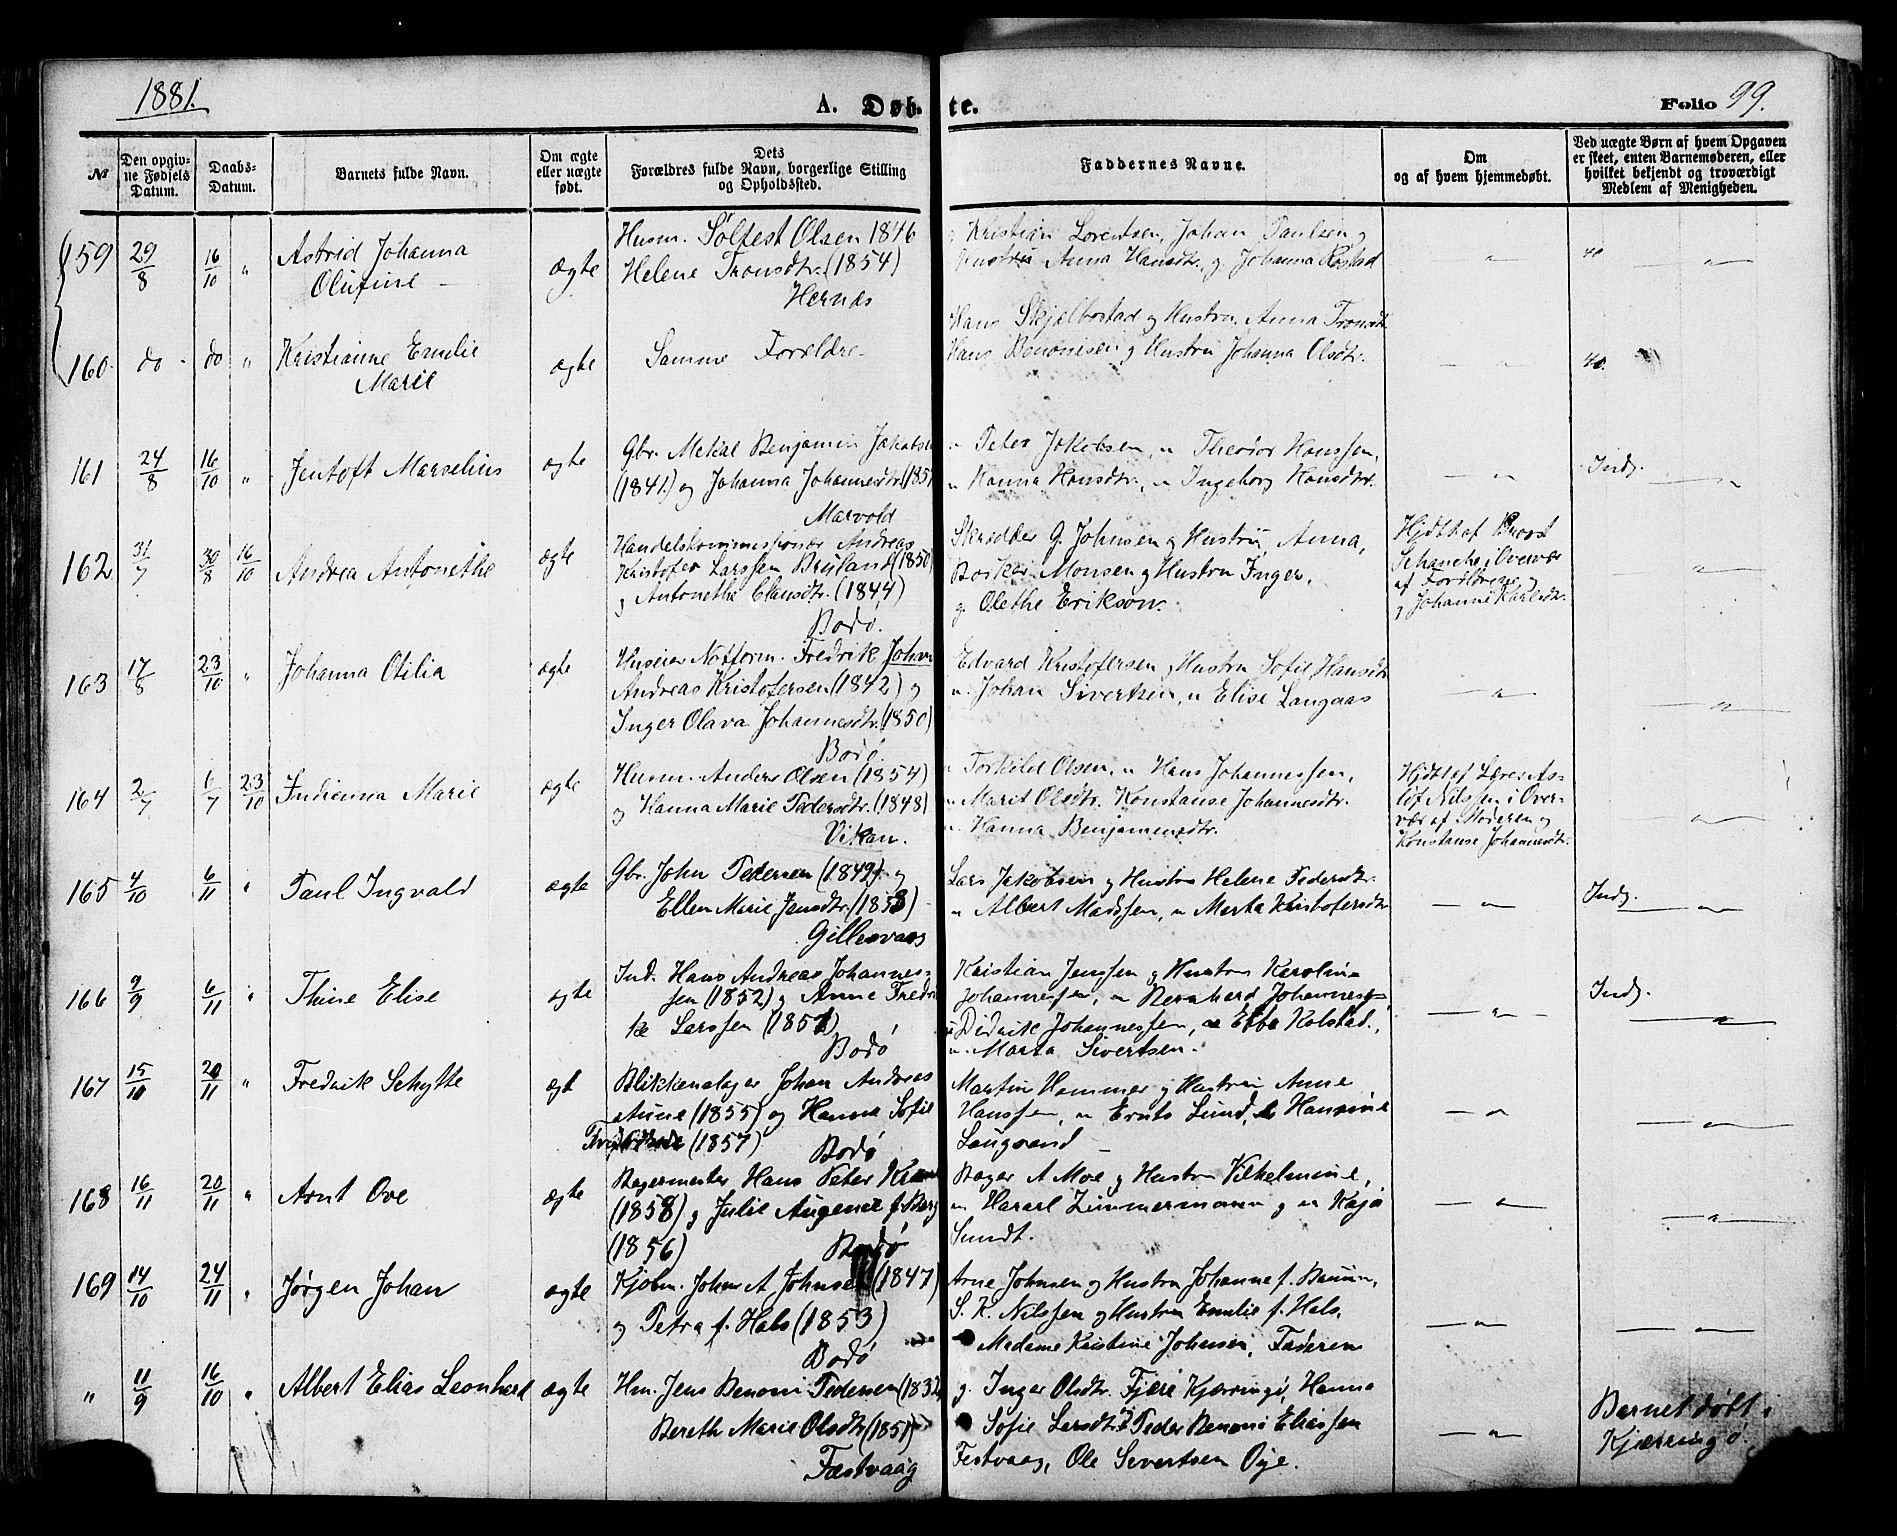 1881.
A. Døbte.
Folio 99.
№
Den opgivne Fødsels Datum.
Daabs-Datum.
Barnets fulde Navn.
Om ægte eller uægte født.
Dets Forældres fulde Navn, borgerlige Stilling og Opholdssted.
Faddernes Navne.
Om og af hvem hjemmedøbt.
Ved uægte Børn af hvem Opgaven er skeet, enten Barnemøderen, eller hvilket bekjendt og troværdigt Medlem af Menigheden.
159 29/8 16/10 " Astrid Johanna
Olufine
ægte
Husm. Søltest Olsen 1846
Helene Tronsdtr. (1854)
Hernæs
Kristian Lorentsen, Johan Paulsen g
Hustru Anna Hansdtr. g Johanna Rostad
160 do do " Kristianne Emelie
Marie
ægte
Samme Forældre
Hans Skjælbostad g Hustru Anna Tronsdt
Hans Benonisen g Hustru Johanna Olsdtr.
161 24/8 16/10 " Jentoft Marselius
ægte
Gbr. Mekal Benjamin Jakobsen
(1841) og Johanna Johannesdtr. (185
Marvold
" Peter Jakobsen, " Theodor Hanssen,
" Hanna Hansdtr., " Ingeborg Hansdtr.
Inds.
162 31/7 30/8 16/10 Andrea Antonethe
ægte
Handelskommissionær Andreas
Kristofer Larssen Bryland (1850)
g Antonethe Clausdtr. (1844)
Bodø.
Skrædder G. Johnsen g Hustru Anna,
Monsen g Hustru Inger,
g Olethe Erikson.
Hjdt af Provst
Schanche i Overvær
af Forældrene g
g Johanne Karlsdtr.
163 17/8 23/10 " Johanna Otilia
ægte
Huseier Notform. Fredrik Johan
Andreas Kristofersen (1842) g
Inger Olava Johannesdtr. (1850)
Bodø.
Edvard Kristofersen g Hustru Sofie Hansdtr
" Johan Sivertsen, " Elise Langaas
164 2/7 6/7 23/10 Indianna Marie
ægte
Husm. Anders Olsen (1854)
g Hanna Marie Pedersdtr. (1848)
Vikan.
" Torkild Olsen, " Hans Johannessen,
" Marit Olsdtr. Konstanse Johannesdtr.
" Hanna Benjaminsdtr.
Hjdt af Lærer As-
løf Nilssen i Over-
vær af Moderen g
Konstanse Johannesdtr.
165 4/10 6/11 " Paul Ingvald
ægte
Gbr. John Pedersen (1849) g
Ellen Marie Jensdtr. (1853)
Gillesvaag
Lars Jakobsen g Hustru Helene Pedersdtr.
" Albert Madssen, " Marta Kristofersdtr
Inds.
166 9/9 6/11 " Thine Elise
ægte
Ind. Hans Andreas Johannes-
sen (1852) g Anne Fredri
ke Larssen (1851)
Bodø
Kristian Jenssen g Hustru Karoline
Johannessen, " Bernhard Johannes-
" Didrik Johannessen, " Ebba Kolstad,
" Marta Sivertsen.
Inds.
167 15/10 20/11 " Fredrik Schytte
ægt
Blikkenslager Johan Andreas
Aune (1855) og Hanna Sofie
(1857) Bodø
Martin Hammer g Hustru Anne
Hanssen, " Ernts Lund, " Hansine
Langsand
168 16/11 20/11 " Arnt Ove
ægte
Bagermester Hans Peter
(1858) g Julie Augenie f. Berg
(1856) Bodø
Bager A Moe g Hustru Vilhelmine,
" Hararl Zimmermann g " Kaja
Sundt.
169 14/10 24/11 " Jørgen Johan
ægte
Kjøbm. Johan A Johnsen (1847)
g Petra f. Hals (1853)
Bodø
Arne Johnsen g Hustru Johanne f.
S. K. Nilssen g Hustru Emelie f. Hals,
Madame Kristine Johnsen, Faderen
" 11/9 16/10 " Albert Elias Leonhard
ægte
Hm. Jens Benoni Pedersen (1832
Bereth Marie Olsdtr. (1851)
Fæstvaag
g. Inger Olsdtr. Fjære Kjærringø, Hanna
Sofie Larsdtr. Peder Benoni Eliassen
Festvaag, Ole Sivertsen Øye.
Barnet døbt i
Kjærringø.